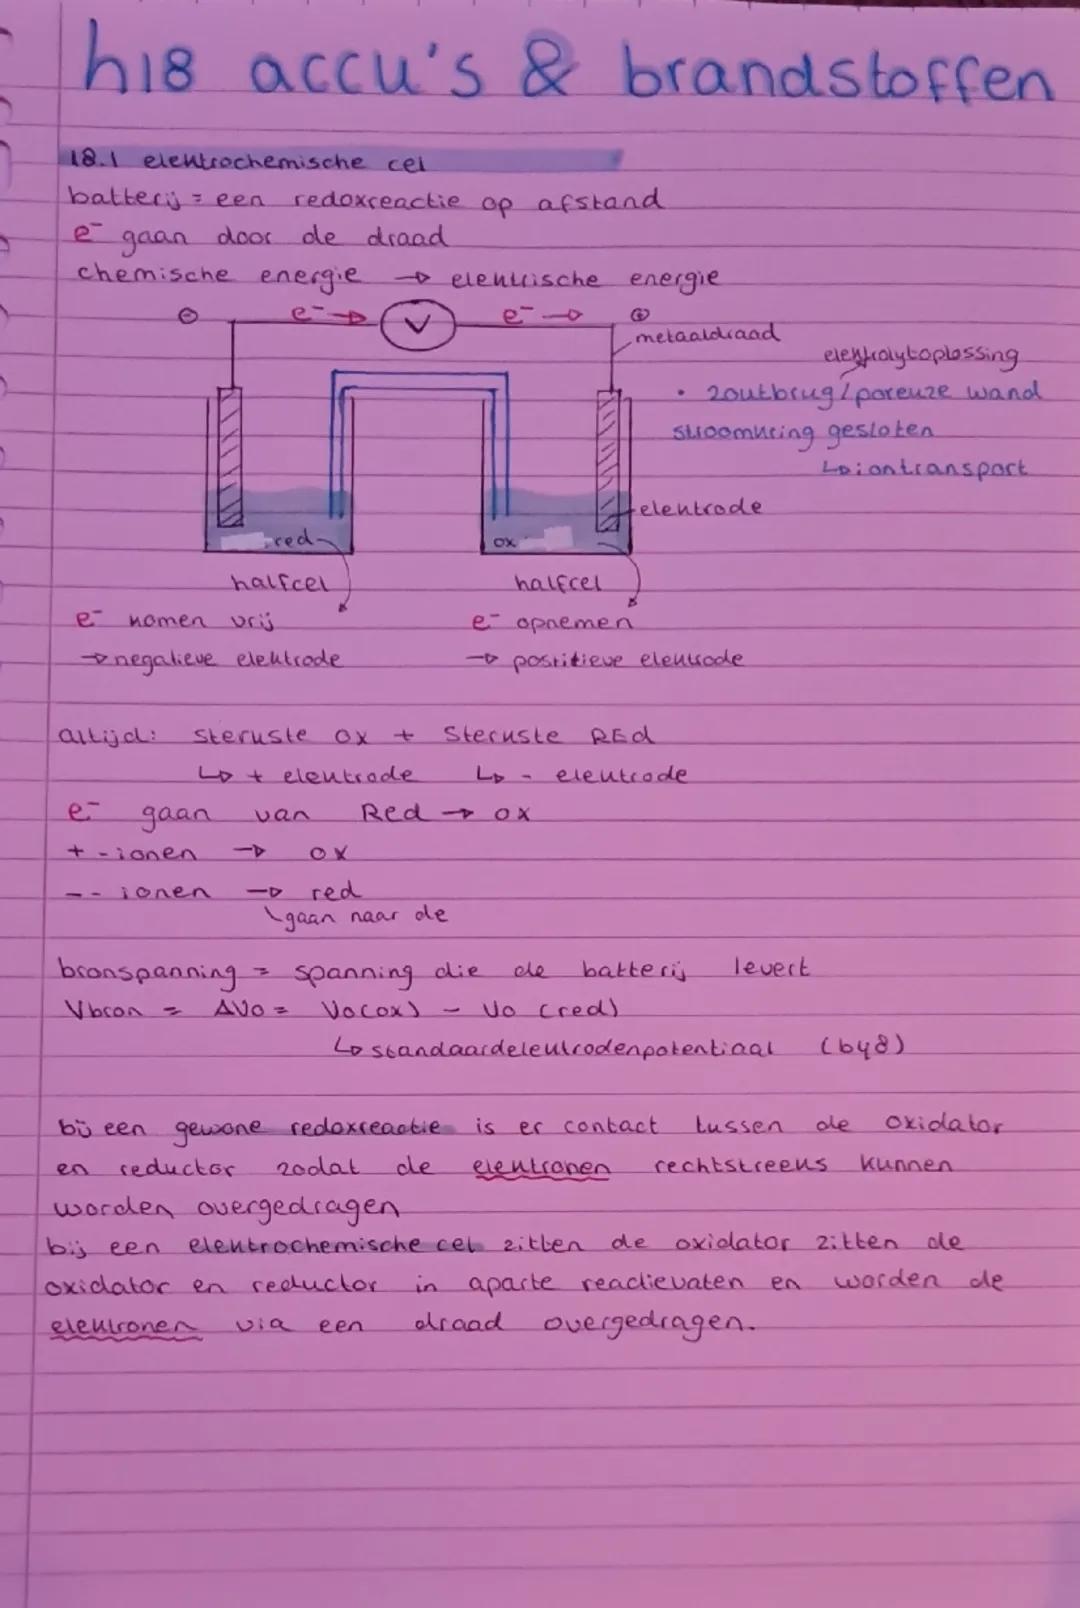 h18 accu's & brandstoffen
18.1 elektrochemische cel
batterij = een redoxreactie op afstand
e⁻ gaan door de draad
chemische energie → elektrische energie
⊖ e⁻→ V e⁻→ ⊕
metaaldraad
elektrolytoplossing
• zoutbrug/poreuze wand
stroomkring gesloten
↳ iontransport
elektrode
red
ox
halfcel halfcel
e⁻ komen vrij e⁻ opnemen
→ negatieve elektrode → postitieve elektrode
altijd: sterkste ox + sterkste RED
↳ + elektrode ↳ - elektrode
e⁻ gaan van Red → ox
+ - ionen → ox
- - ionen → red
gaan naar de
bronspanning = spanning die de batterij levert
Vbron = ΔV0 = V0(ox) - V0 (red)
↳ standaardelektrodenpotentiaal (b48)
bij een gewone redoxreactie is er contact tussen de oxidator
en reductor zodat de elektronen rechtstreeks kunnen
worden overgedragen
bij een elektrochemische cel zitten de oxidator zitten de
oxidator en reductor in aparte reactievaten en worden de
elektronen via een draad overgedragen.